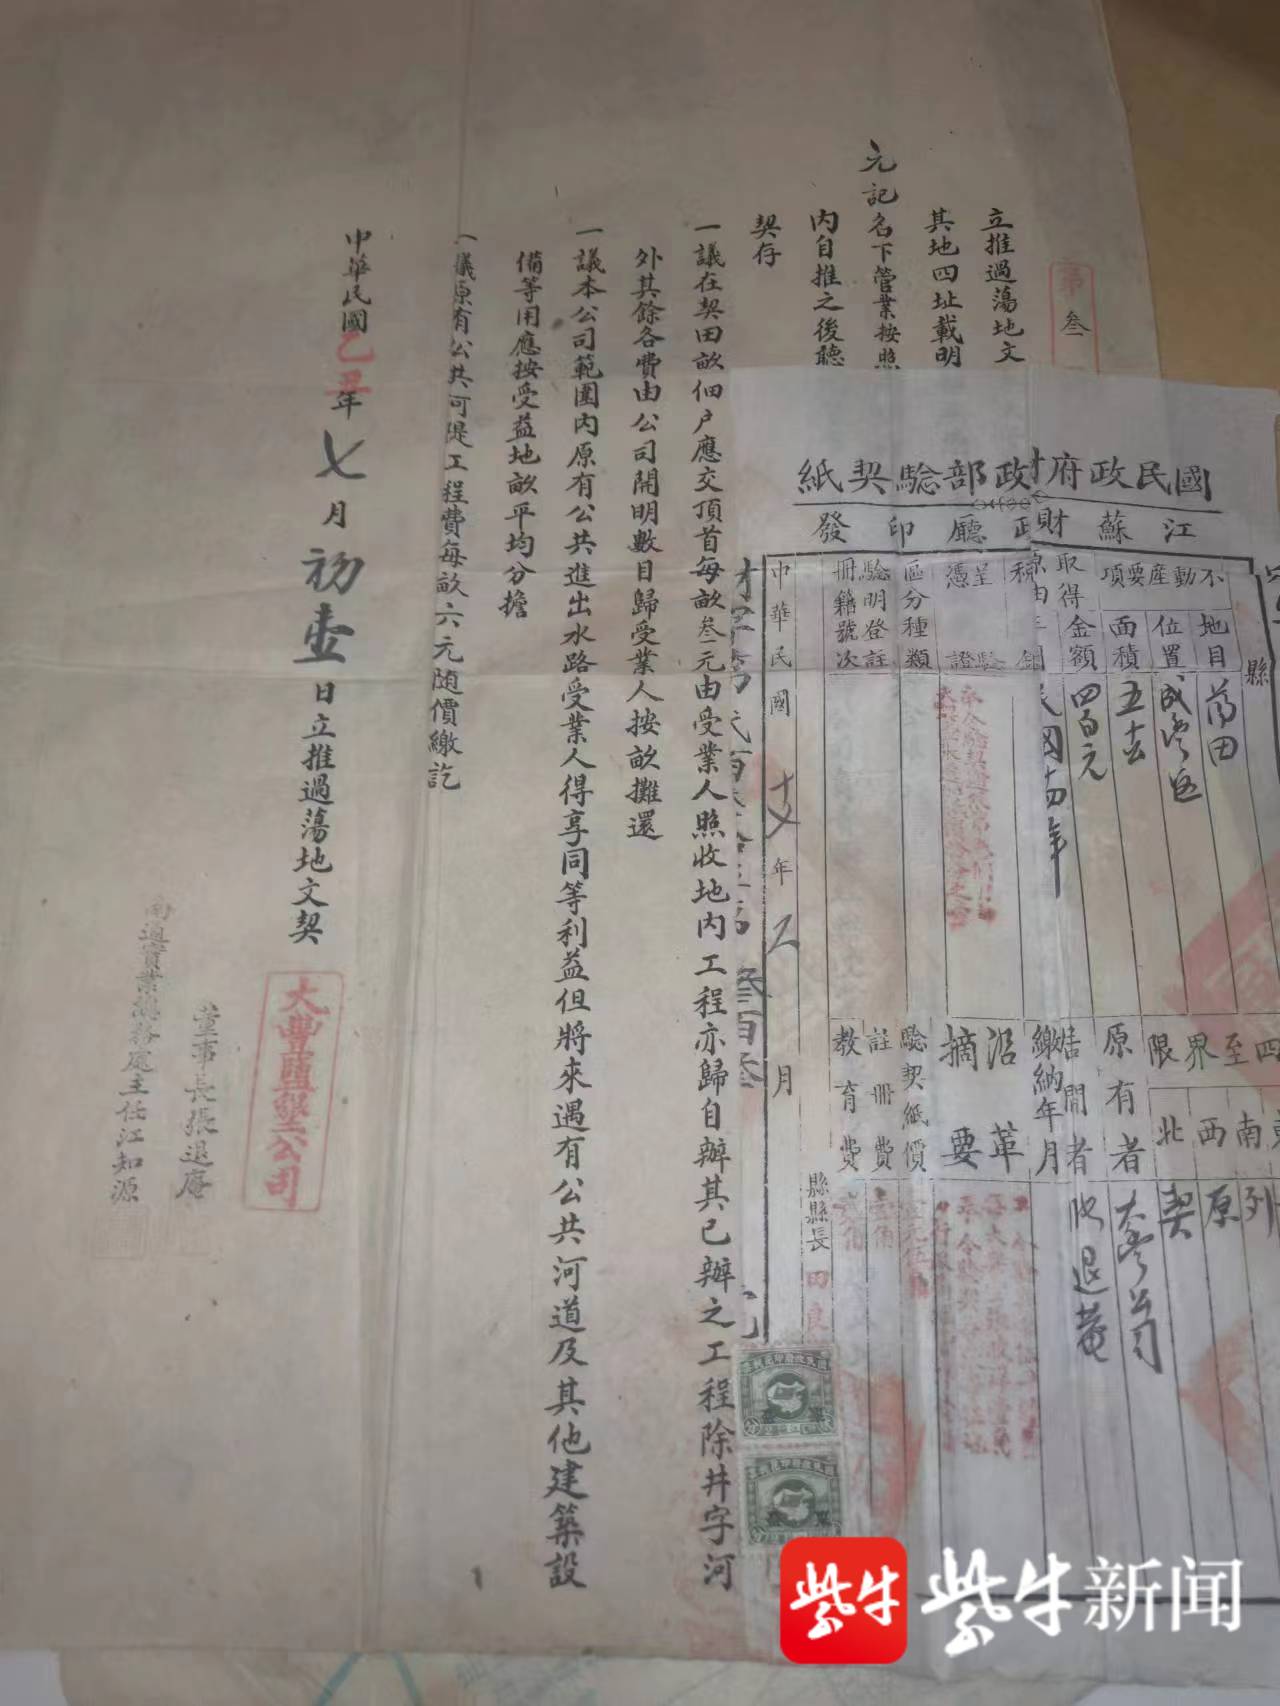 第叁
立推過蕩地文
其地四址載明
元記名下管業按照
內自推之後聽
契存
一議在契田畝佃户應交頂首每畝叁元由受業人照收地內工程亦歸自辦其已辦之工程除井字河
外其餘各費由公司開明數目歸受業人按畝攤還
一議本公司範圍內原有公共進出水路受業人得享同等利益但將來遇有公共河道及其他建築設
備等用應按受益地畝平均分擔
一議原有公共河堤工程費每畝六元隨價繳訖
中華民國乙丑年七月初壹日立推過蕩地文契
大豐鹽墾公司
董事長張退庵
南通實業總務處主任江知源
國民政府財政部驗契紙
江蘇財政廳印發
縣
不動產要項
地目
蕩田
位置
成豐區
面積
取得
金額
四百元
民國十四年
呈驗憑證
區分種類
驗明登註冊籍號次
中華民國十七年
月
四至界限
東
南
西
北
列
原
契
原有者
大豐公司
居間者
張退菴
繳納年月
沿革摘要
驗契紙價
壹元伍角
註冊費
壹角
教育費
貳角
縣縣長
田良
紫牛
紫牛新闻